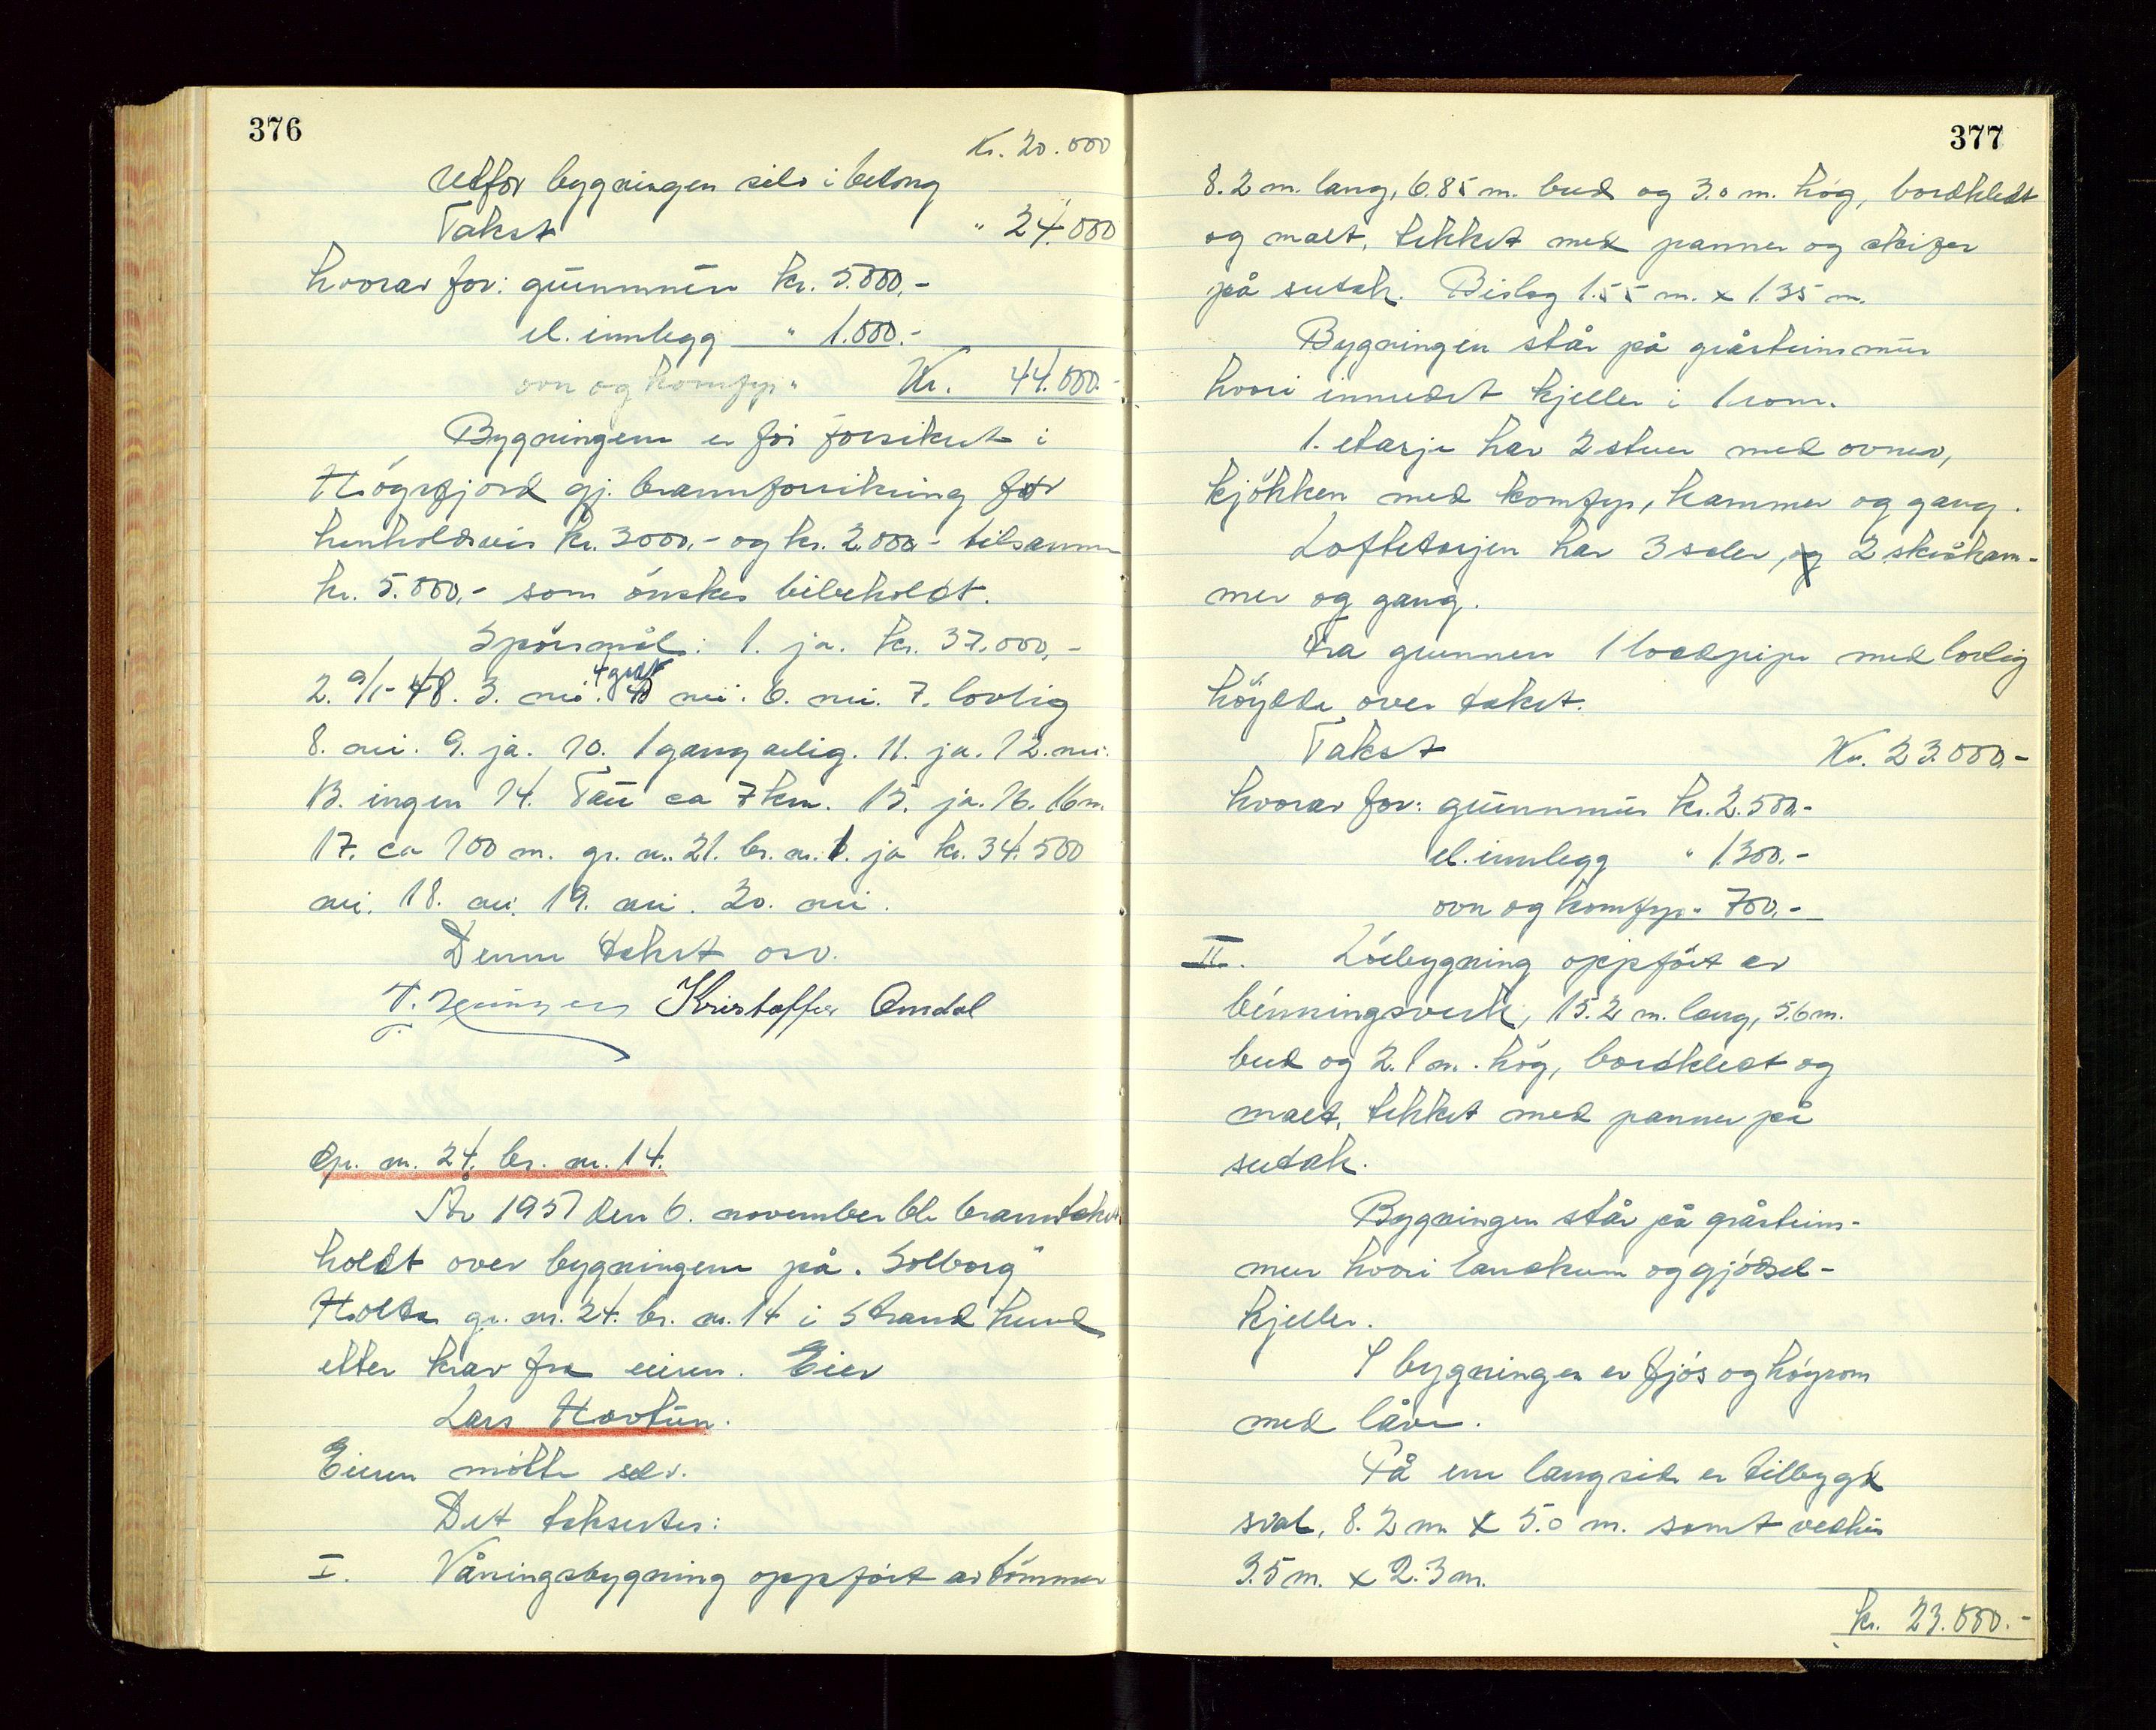 376
Kr. 20.000
Utfor bygningen silo i betong
Takst " 24.000
hvorav for: grunnmur kr. 5.000,-
el. innlegg " 1.000.-
ovn og komfyr " Kr. 44.000.-
Bygningene er før forsikret i
Høgsfjord gj. brannforsikring for
henholdsvis kr. 3000,- og kr. 2.000.- tilsammen
kr. 5.000,- som ønskes bibeholdt.
Spørsmål: 1. ja. kr. 37.000,-
2. 9/1-48. 3. nei. nei. 6. nei. 7. lovlig
8. nei. 9. ja. 10. 1 gang årlig. 11. ja. 12. nei.
13. ingen 14. Tau ca 7 km. 15. ja. 16. 16 m.
17. ca 100 m. gr. nr. 21. br. nr. 1. ja kr. 34.500
nei. 18. nei. 19. nei. 20. nei.
Denne takst osv.
Kristoffer Omdal
Gr. nr. 24. br. nr. 14.
År 1957 den 6. november ble branntakst
holdt over bygningene på "Solborg"
Holta gr. nr. 24. br. nr. 14 i Strand herred
etter krav fra eieren. Eier
Lars Havtun.
Eieren møtte selv.
Det takseres:
I. Våningsbygning oppført av tømmer
377
8.2 m. lang, 6.85 m. bred og 3.0 m. høg, bordkledt
og malt, tekket med panner og skifer
på sutak. Bislag 1.55 m. x 1.35 m.
Bygningen står på gråsteinsmur
hvori innredet kjeller i 1 rom.
1. etasje har 2 stuer med ovner,
kjøkken med komfyr, kammer og gang.
Loftetasjen har 3 soler, og 2 skråkam-
mer og gang.
Fra grunnen 1 loddpipe med lovlig
høyde over taket.
Takst Kr. 23.000.-
hvorav for: grunnmur kr. 2.500.-
el. innlegg " 1.300.-
ovn og komfyr " 700.-
II. Løebygning oppført av
binningsverk, 15.2 m. lang, 5.6 m.
bred og 2.1 m. høg, bordkledt og
malt, tekket med panner på
sutak.
Bygningen står på gråsteins-
mur hvori landkum og gjødsel-
kjeller.
I bygningen er fjøs og høyrom
med låve.
På ene langside er tilbygd
sval, 8.2 m x 5.0 m. samt vedhus
3.5 m. x 2.3 m.
kr. 23.000.-